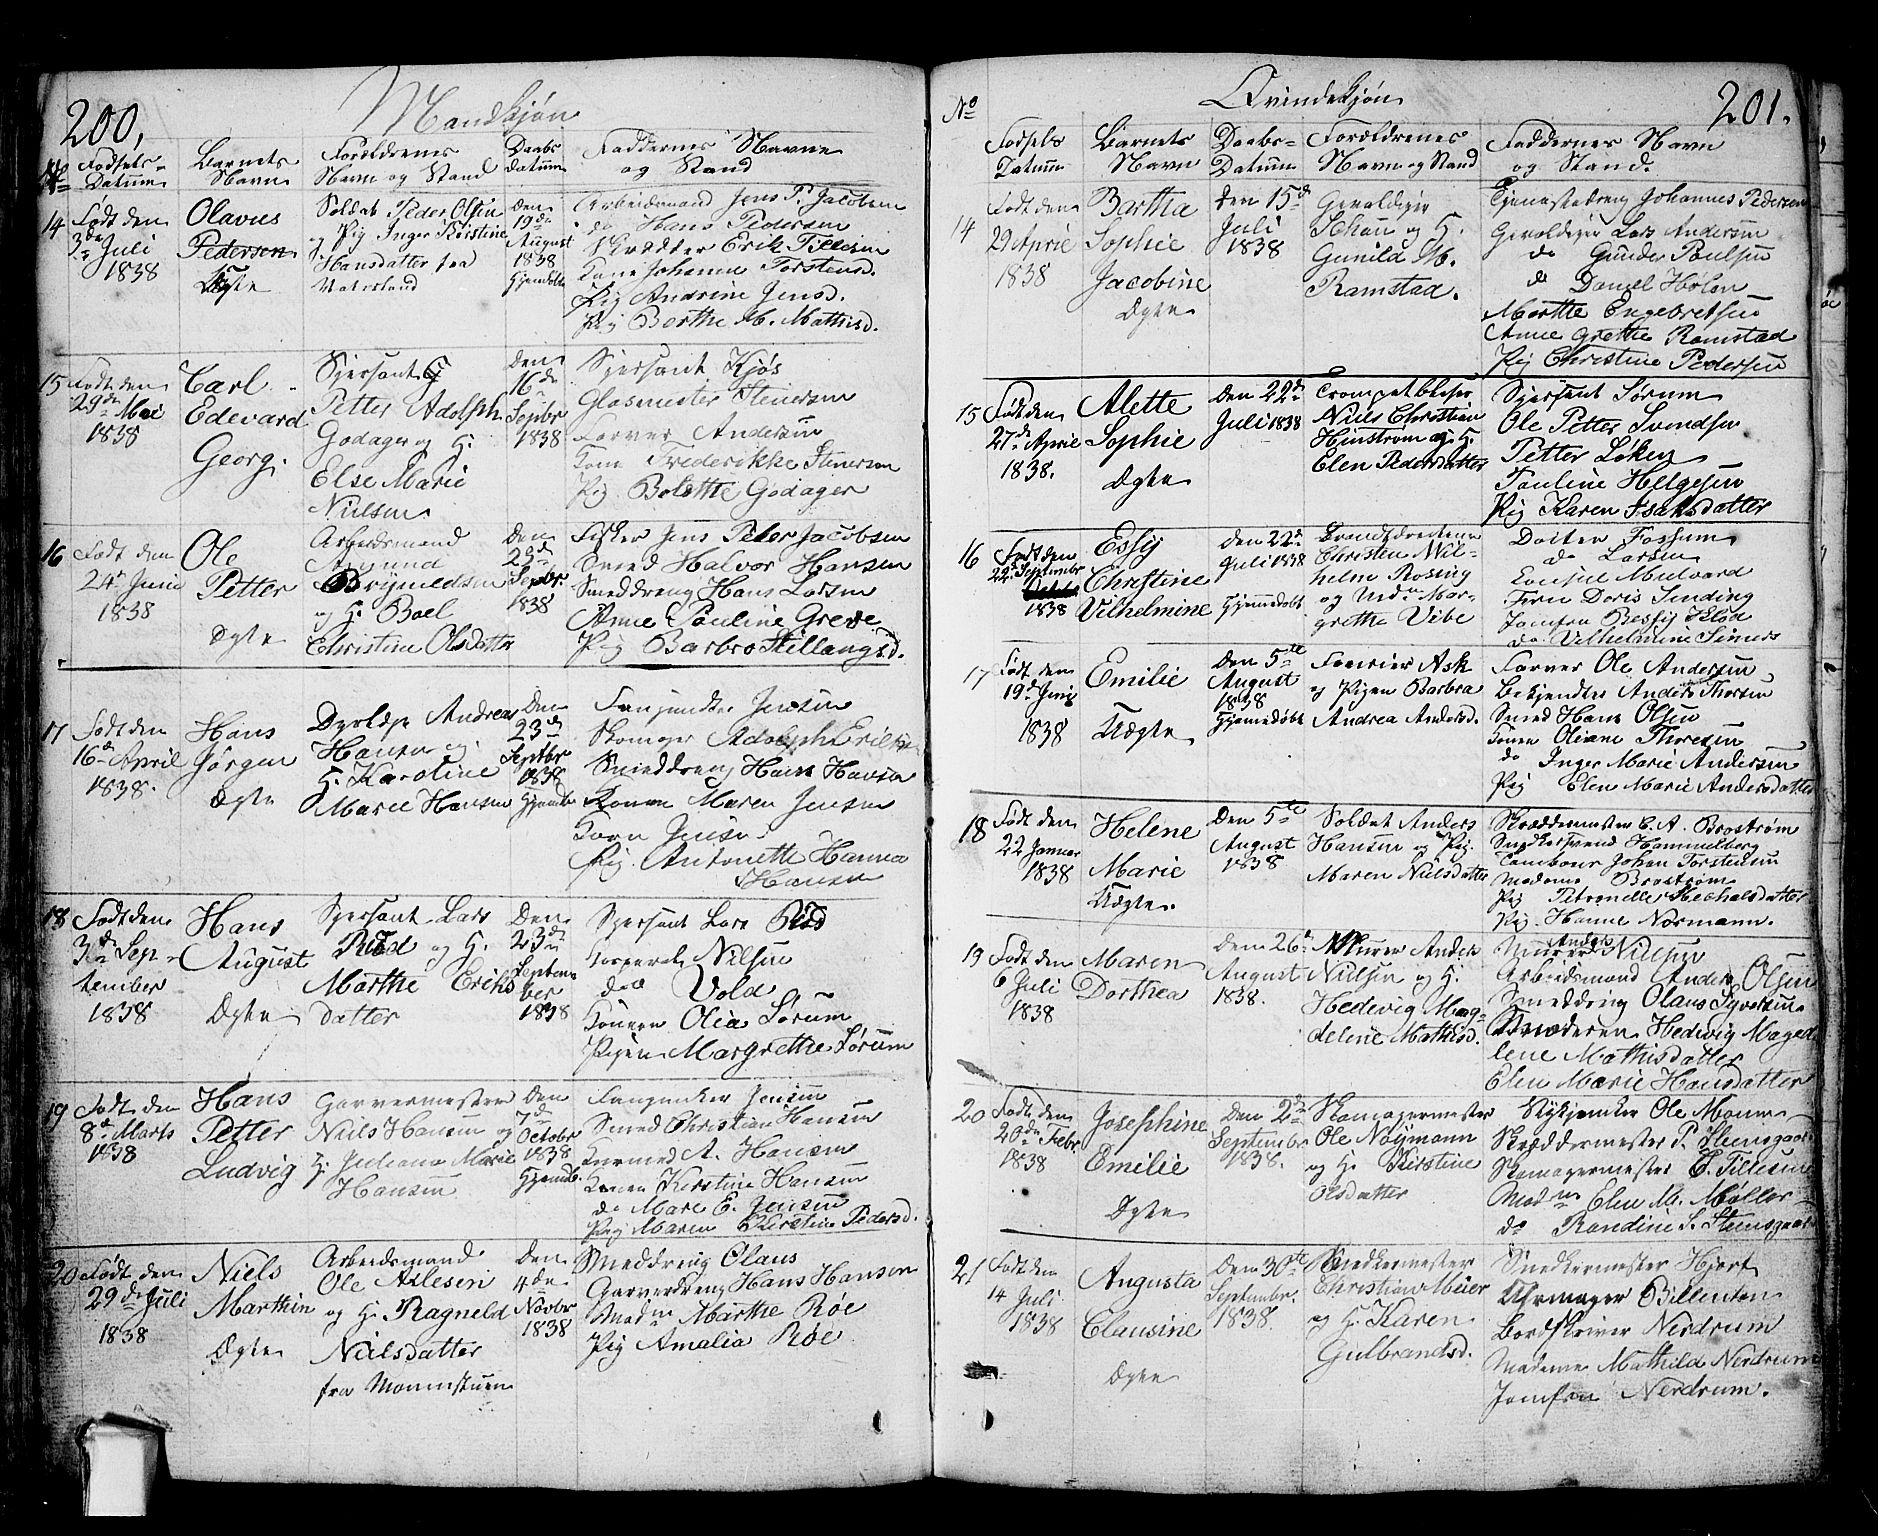 200,
Mandkjøn
No
Fødsels-
Datum
Barnets
Navn
Forældrenes
Navn og Stand
Daabs
datum
Faddernes Navne
og Stand
14
Født den
3de Juli
1838
Olavus
Pedersen
Ægte
Soldat Peder Olsen
og Pig Inger Kirstine
Hansdatter fra
Den
19de
August
1838
Hjemdøbt
Arbeidsmand Jens P. Jacobsen
do Hans Pedersen
Skrædder Erik Tillesen
Kone Johanne Torstensd.
Pig Andrine Jensd.
Pig Berthe M. Mathisd.
15
Født den
29de Mai
1838
Carl
Edevard
Georg.
Sjersant
Petter Adolph
Godager og H.
Else Marie
Nielsen.
Den
16de
Septbr
1838
Sjersant Kjøs
Glasmester Stenersen
Farver Andersen
Kone Frederikke Stenersen
Pig Bolette Godager
16
Født den
24de Juni
1838
Ole
Petter
Ægte
Arbeidsmand
Amund
Brynildsen
og H. Boel
Christine Olsdatter
Den
Septbr.
1838
Fisker Jens Peter Jacobsen
Smed Halvor Hansen
Smeddreng Hans Larsen
Anne Pauline Greve
Pig Barbro Killangsd.
17
Født den
16de April
1838.
Hans
Jørgen
Ægte
Andreas
Hansen og
H. Karoline
Marie Hansen
Den
23de
Septbr
1838
Hjemdb
Jensen
Skomager Adolph Eriksen
Smeddreng Hans Hansen
Konen Maren Jensen
Karn Jense
Pig. Antonette Hanna
Hansen
18
Født den
3de Sep-
tember
1838
Hans
August
Ægte
Sjersant Lars
Riud og H.
Marthe Eriks
datter
Den
23de
Septem
ber
1838
Sjersant Lars Riud
Korporal Nilsen
do Vold
Konen Olia Sørum
Pigen Margrethe Sørum
19
Født den
8de Marts
1838
Hans
Petter
Ludvig
Garvermester
Niels Hansen og
H. Juliana Marie
Hansen
Den
7de
Octobr
1838
Hjemdb.
Jensen
Smed Christian Hansen
A. Hansen
Konen Kirstine Hansen
do Mare E. Jensen
Pig Maren Kirstine Pedersd.
20
Født den
29de Juli
1838
Niels
Marthin
Ægte
Arbeidsmand
Ole Axlesen
og H. Ragneld
Nielsdatter
fra Monnistuen
Den
4de
Novbr
1838
Smeddreng Olaus
Garverdreng Hans Hansen
Madm Marthe Røe
Pig Amalia Røe
No
Qvindekjøn
201.
Fødsels
Datum
Barnets
Navn
Daabs-
Datum
Forældrenes
Navn og Stand
Faddernes Navn
og Stand.
14
Født den
29 April
1838
Bertha
Sophie
Jacobine
Ægte
Den 15de
Juli
1838
Gevaldiger
Schou og H.
Gunild M.
Ramstad.
Tjenestedreng Johannes Pedersen
Gevaldiger Lars Andersen
do Gunder Paulsen
do Daniel Hølen
Marthe Engebretsen
Anne Grethe Ramstad
Pig Christine Pedersen
15
Født den
27de April
1838.
Alette
Sophie
Ægte
Den 22de
Juli 1838
Trompetblæser
Niels Christian
Hinstrøm og H.
Elen Pedersdatter
Sjersant Sørum
Ole Petter Svendsen
Petter Løken
Pauline Helgesen
Pig Karen Isaksdatter
16
Født den
22de Septembr
1838
Essy
Christine
Vilhelmine
Den 22de
Juli 1838
Hjemmedøbt
Christen Wil-
helm Rosing
og Mad. Mar-
grethe Vibe
Doctor Fossum
do Larsen
Consul Mulvard
Fru Doris Sinding
Jomfru Bessy Klød
do Vilhelmine Siners
17
Født den
19de Juni
1838
Emilie
Uægte
Den 5te
August
1838
Hjemedøbt
Fourier Ask
og Pigen Barbra
Andrea Andersd.
Farver Ole Andersen
Bekjendter Anders Thorsen
Smed Hans Olsen
Konen Oliane Thoresen
do Inger Marie Andersen
Pig Elen Marie Andersdatter
18
Født den
22 Januar
1838
Helene
Marie
Uægte.
Den 5te
August
1838
Soldat Anders
Hansen og Pig.
Maren Nielsdatter
Skræddermester C. A. Brostrøm
Snedkersvend Hammelberg
Tambour Johan Torstensen
Madame Brostrøm
Pig Petronelle Mechalsdatter
Pig. Hanne Normann.
19
Født den
6 Juli
1838
Maren
Dorthea
Den 26de
August
1838.
Murer Anders
Nielsen og H.
Hedevig Mag-
delene Mathisd.
Murer Anders Nielsen
Arbeidsmand Anders Olsen
Smeddreng Olaus Syvertsen
Hedvig Magd
lene Mathisdatter
Elen Marie Hansdatter
20
Født den
20de Febr.
1838
Josephine
Emilie
Ægte
Den 2de
Septembr
1838.
Skomagermester
Ole Nøymann
og H. Kirstine
Olsdatter
Ole Monsen
Skræddermester P. Steensgaar
Skomagermester E. Tillesen
Madm Elen M. Møller
do Randine S. Steensgaar
21
Født den
14 Juli
1838
Augusta
Clausine
Ægte
Den 30te
Septembr.
1838.
Snedkermester
Christian Meier
og H. Karen
Gulbrandsd.
Snedkermester Hjort
Uhrmager Billenton
Bordskriver Nerdrum
Madame Mathild Nerdrum
Jomfru Nerdrum.